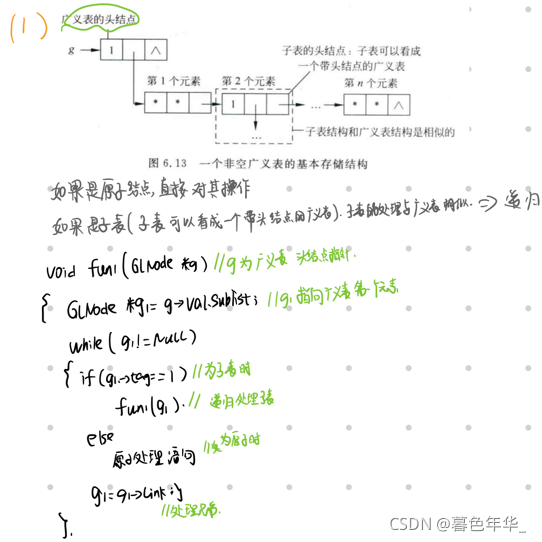 (1)
广义表的头结点
g
1
∧
子表的头结点：子表可以看成
一个带头结点的广义表
第 1 个元素
第 2 个元素
第 n 个元素
* *
1
…
* * ∧
…
子表结构和广义表结构是相似的
图 6.13 一个非空广义表的基本存储结构
如果是原子结点,直接对其操作
如果是子表(子表可以看成一个带头结点的广义表).子表的处理与广义表相似. => 递归
void fun1(GLNode *g) //g为广义表头结点指针
{ GLNode *g1= g->val.sublist; //g1指向广义表第一个元素
while(g1!=NULL)
{ if(g1->tag==1) //为子表时
fun1(g1). // 递归处理子表
else
原子处理语句 //为原子时
g1=g1->link;
//处理兄弟.
}.
CSDN @暮色年华_